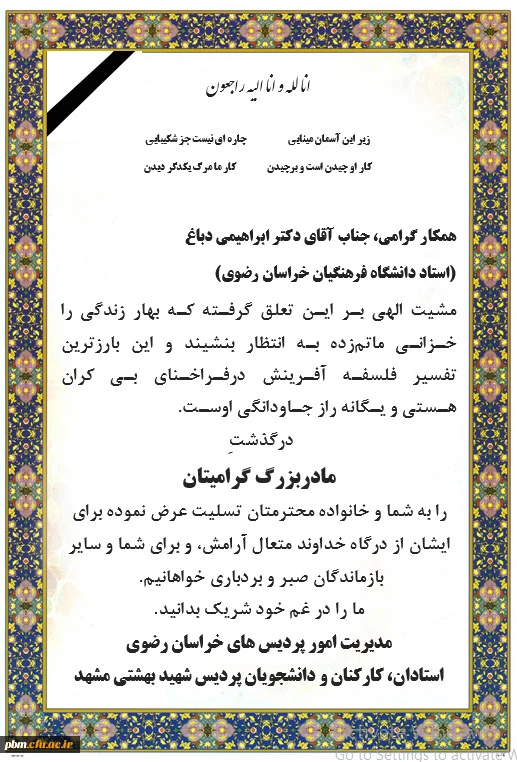 انا لله و انا الیه راجعون
زیر این آسمان مینایی چاره ای نیست جز شکیبایی
کار او چیدن است و برچیدن کار ما مرگ یکدگر دیدن
همکار گرامی، جناب آقای دکتر ابراهیمی دباغ
(استاد دانشگاه فرهنگیان خراسان رضوی)
مشیت الهی بر این تعلق گرفته که بهار زندگی را
خزانی ماتم‌زده به انتظار بنشیند و این بارزترین
تفسیر فلسفه آفرینش درفراخنای بی کران
هستی و یگانه راز جاودانگی اوست.
درگذشتِ
مادربزرگ گرامیتان
را به شما و خانواده محترمتان تسلیت عرض نموده برای
ایشان از درگاه خداوند متعال آرامش، و برای شما و سایر
بازماندگان صبر و بردباری خواهانیم.
ما را در غم خود شریک بدانید.
مدیریت امور پردیس های خراسان رضوی
استادان، کارکنان و دانشجویان پردیس شهید بهشتی مشهد
pbm.cfu.ac.ir
Go to Settings to activate W